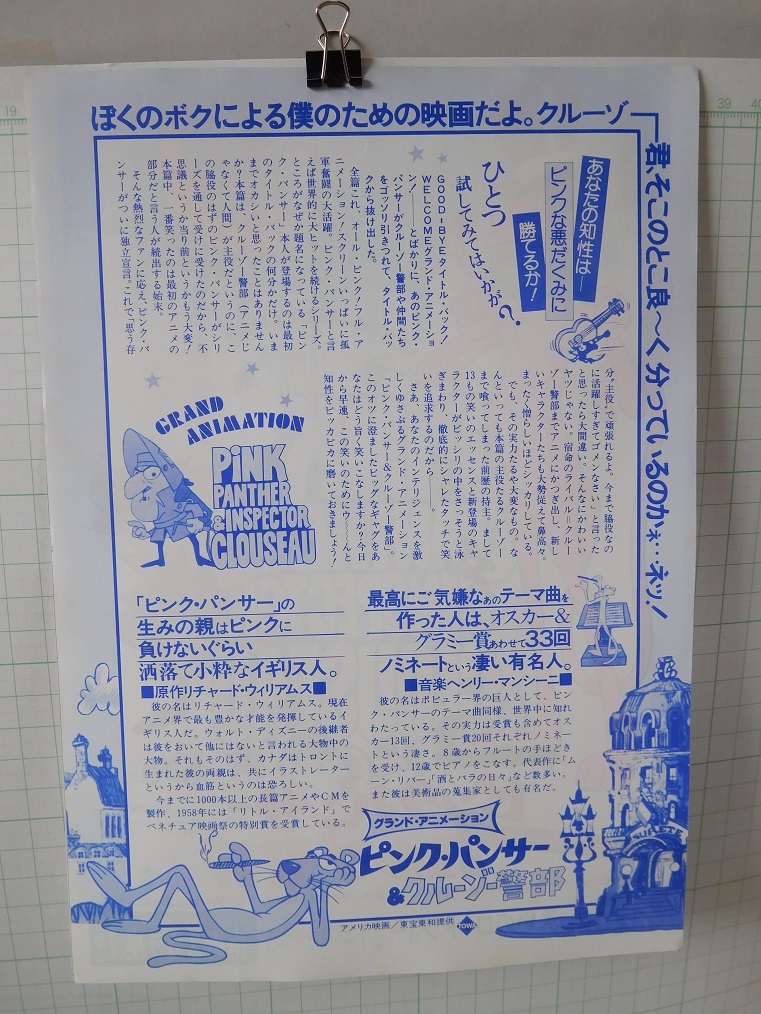 ぼくのボクによる僕のための映画だよ。クルーゾ
君、そこのとこ良〜く分っているのかネ…ネッ!
あなたの知性は——
ピンクな悪だくみに
勝てるか!
ひとつ
試してみてはいかが?
GOOD-BYEタイトル・バック!
WELCOMEグランド・アニメーショ
ン!——とばかりに、あのピンク・
パンサーがクルーゾー警部や仲間たち
をゴッソリ引きつれて、タイトル・バッ
クから抜け出した。
全篇これ、オール・ピンク!フル・ア
ニメーション!スクリーンいっぱいに孤
軍奮闘の大活躍。ピンク・パンサーと言
えば世界的に大ヒットを続けるシリーズ。
ところがなぜか題名になっている「ピン
ク・パンサー」本人が登場するのは最初
のタイトル・バックの何分かだけ。いま
までオカシいと思ったことはありません
か?本篇は、クルーゾー警部(アニメじ
ゃなくて人間)が主役だというのに、こ
の脇役のはずのピンク・パンサーがシリ
ーズを通して受けに受けたのだから、不
思議というか当り前というかもう大変!
本篇中、一番笑ったのは最初のアニメの
部分だと言う人が続出する始末。
そんな熱烈なファンに応え、ピンク・パ
ンサーがついに独立宣言。これで「思う存
分〝主役〟で頑張れるよ。今まで脇役なの
に活躍しすぎてゴメンなさい」と言った
と思ったら大間違い。そんなにかわいい
ヤツじゃない。宿命のライバル=クルー
ゾー警部までアニメにかつぎ出し、新し
いキャラクターたちも大勢従えて鼻高々。
まったく憎らしいほどシッカリしている。
でも、その実力たるや大変なもの。な
んといっても本篇の主役たるクルーゾー
まで喰ってしまった前歴の持主。まして
13もの笑いのエッセンスと新登場のキャ
ラクターがビッシリの中をさっそうと泳
ぎまわり、徹底的にシャレたタッチで笑
いを追求するのだから——。
さあ、あなたのインテリジェンスを激
しくゆさぶるグランド・アニメーション
「ピンク・パンサー&クルーゾー警部」。
このオツに澄ましたビッグなギャグをあ
なたはどう旨く笑いこなしますか?今日
から早速、この笑いのためにウ〜んと
知性をピッカピカに磨いておきましょう!
GRAND
ANIMATION
PiNK
PANTHER
& INSPECTOR
CLOUSEAU
「ピンク・パンサー」の
生みの親はピンクに
負けないぐらい
洒落て小粋なイギリス人。
■原作リチャード・ウィリアムス■
彼の名はリチャード・ウィリアムス。現在
アニメ界で最も豊かな才能を発揮しているイ
ギリス人だ。ウォルト・ディズニーの後継者
は彼をおいて他にはないと言われる大物中の
大物。それもそのはず、カナダはトロントに
生まれた彼の両親は、共にイラストレーター
というから血筋というのは恐ろしい。
今までに1000本以上の長篇アニメやCMを
製作、1958年には「リトル・アイランド」で
ベネチュア映画祭の特別賞を受賞している。
最高にご気嫌なあのテーマ曲を
作った人は、オスカー&
グラミー賞あわせて33回
ノミネートという凄い有名人。
■音楽ヘンリー・マンシーニ■
彼の名はポピュラー界の巨人として、ピン
ク・パンサーのテーマ曲同様、世界中に知れ
わたっている。その実力は受賞も含めてオス
カー13回、グラミー賞20回それぞれノミネー
トという凄さ。8歳からフルートの手ほどき
を受け、12歳でピアノをこなす。代表作に「ム
ーン・リバー」「酒とバラの日々」など数多い。
また彼は美術品の蒐集家としても有名だ。
グランド・アニメーション
ピンク・パンサー
&クルーゾー警部
アメリカ映画/東宝東和提供
TOWA
SURETE
19
39
40